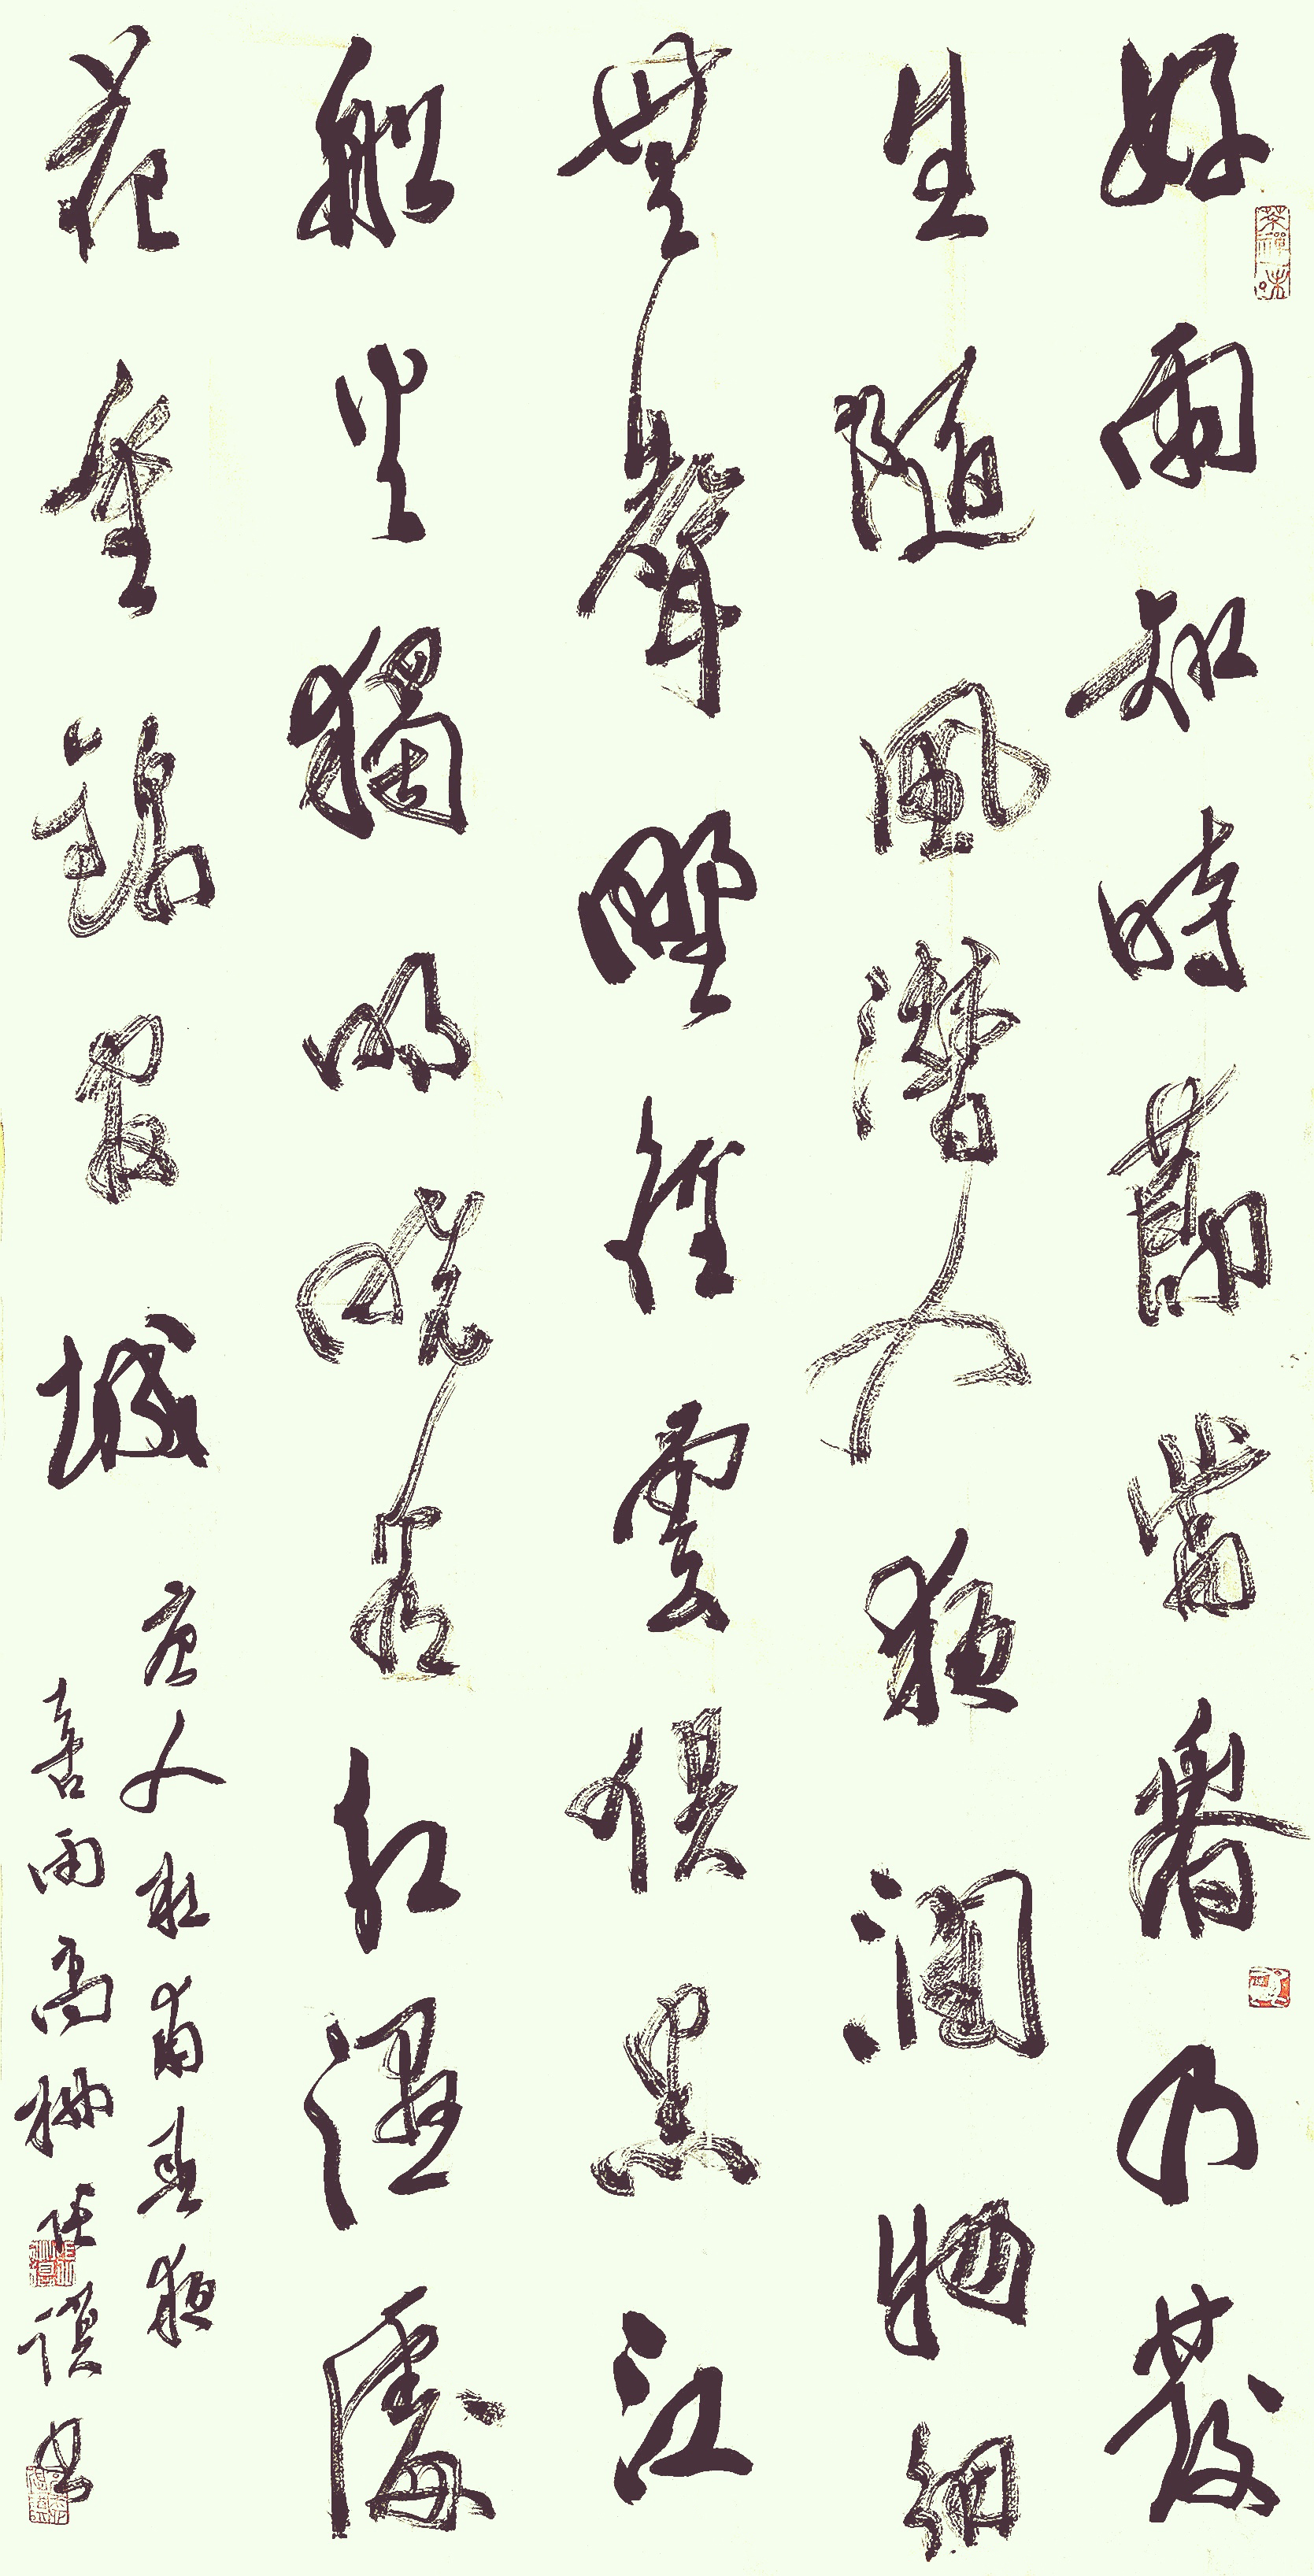 好雨知時節當春乃發
生隨風潛入夜潤物細
無聲野徑雲俱黑江
船火獨明曉看紅濕處
花重錦官城
唐人杜甫春夜
喜雨高柳張書
茶禪味